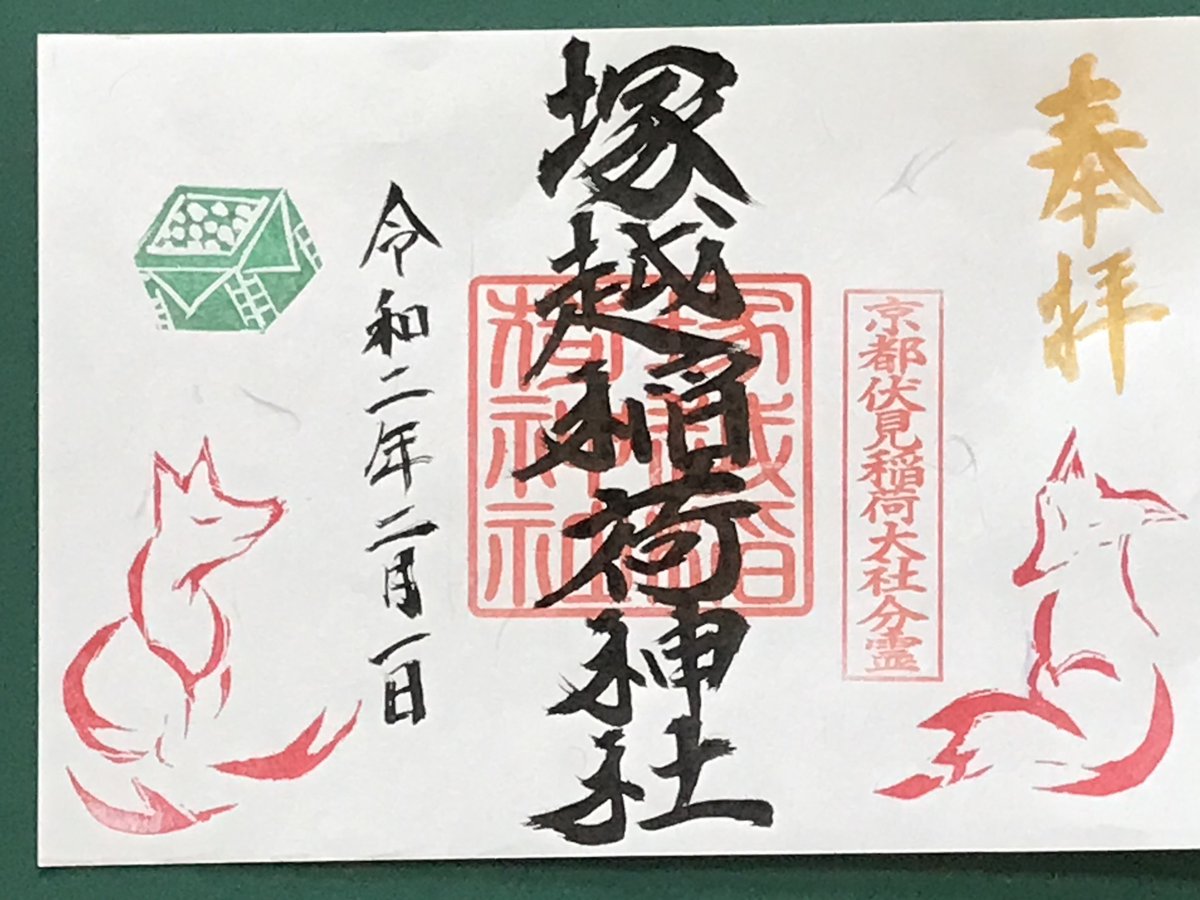 奉拝
京都伏見稲荷大社分霊
塚越稲荷神社
塚越稲荷神社
令和二年二月一日